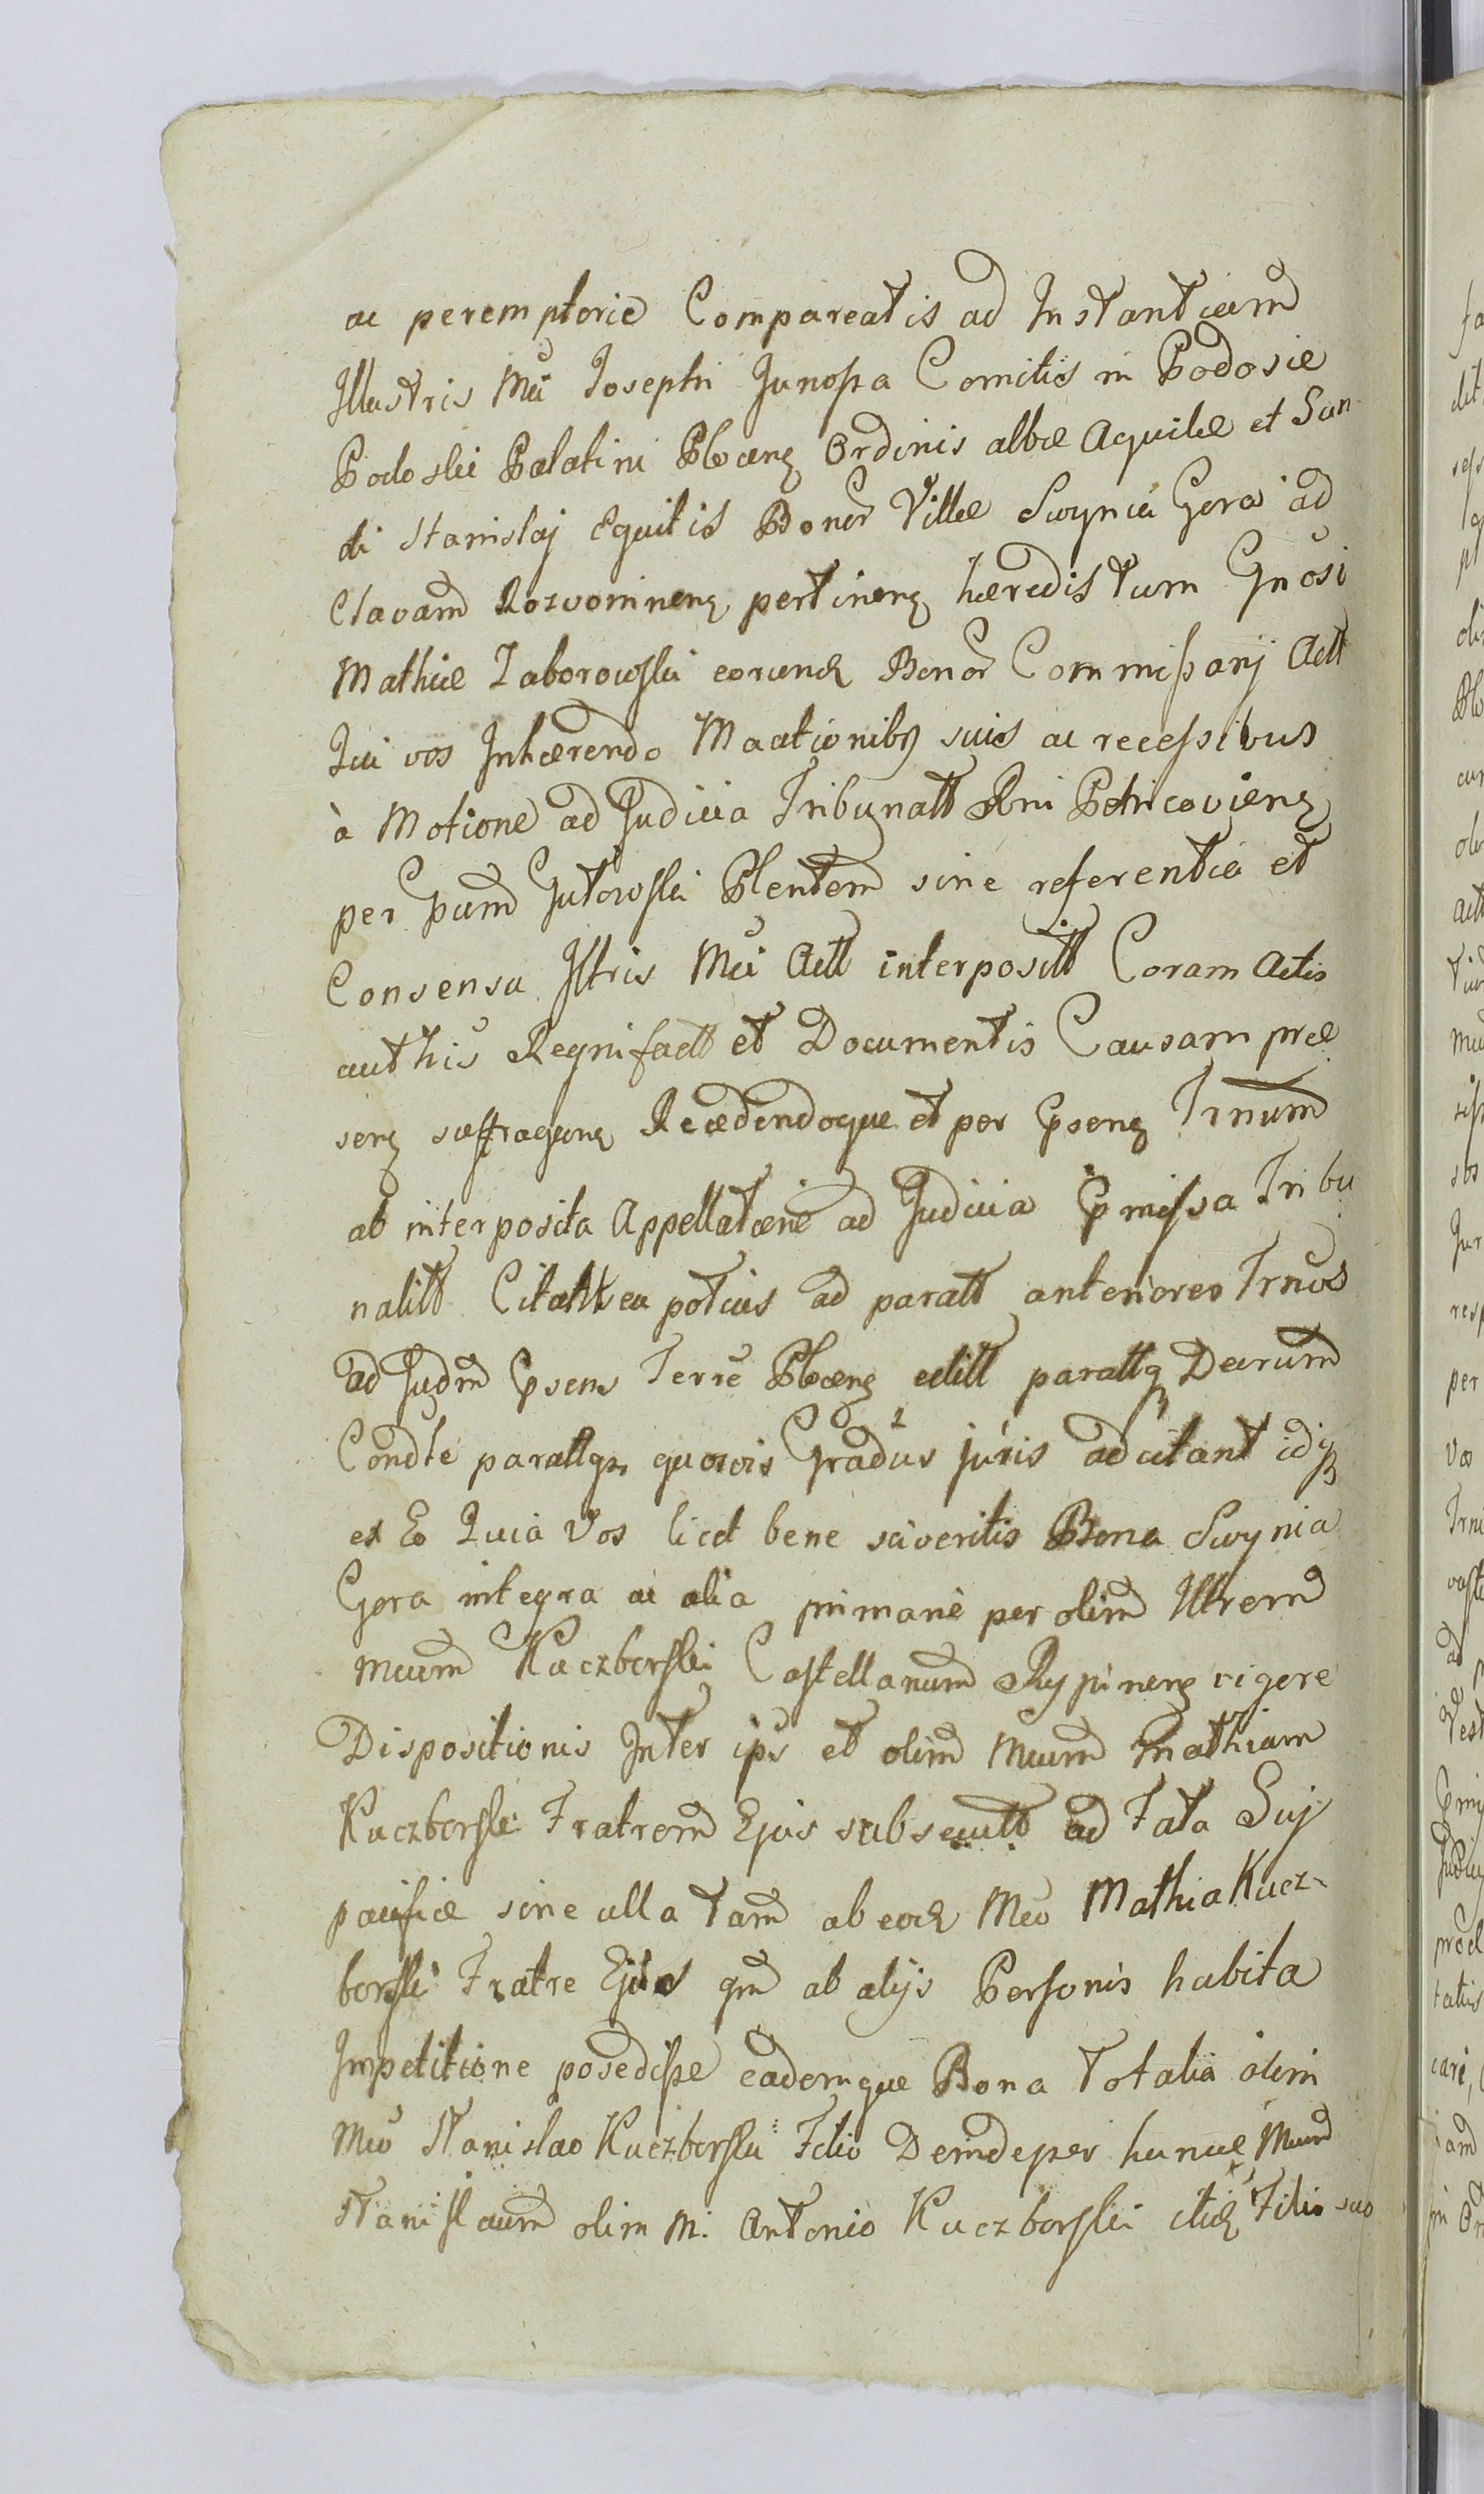 ac peremptorie Compareatis ad Instantiam
Illustris Mci Josephi Junosza Comitis in Podosie
Podoski Palatini Plocens Ordinis albæ Aquilæ et San
cti Stanislaj Equitis Bonor Villæ Swynia Gora ad
Clavam Rozvominens pertinens hæredis tum Gnosi
Mathiæ Zaborowski eorund Bonor Commissarij Act
Qui vos Inhærendo Maationibus suis ac recessibus
à Motione ad Judicia Tribunatt Rni Petricoviens
per Gutowski Plentem sine referentia et
Consensu Iltris Mci Act interpositt Coram Actis
authis Regni factt et Documentis Causam præ
sens suffragans Recedendoque et per Tmum
ab interposita Appellatæne ad Judicia præmissa Tribu
nalitt Citatt seu potius ad paratt anteriores Trnos
ad Judm præsens Terræ Plocens editt parattq Dearum
Condte parattqs quosvis Gradus juris adcitant idq
ex Eo Quia Vos licet bene sciveritis Bona Swynia
Gora integra ac alia primarie per olim Iltrem
Mcum Kuczborski Castellanum Rypinens vigore
Dispositionis Inter ips et olim Mcum Mathiam
Kuczborski Fratrem Ejus subsecutt ad Fata Suj
pacifice sine ulla tam ab eod Mco Mathia Kucz-
borski Fratre Ejus qm ab alijs Personis habita
Impetitione posedisse eademque Bona Totalia olim
Mco Stanislao Kuczborski Filio Deinde per hunce Mcum
Stanislaum olim M. Antonio Kuczborski itid Filio suo